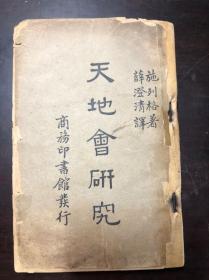 施列格著
薛澄清譯
天地會研究
商務印書館發行